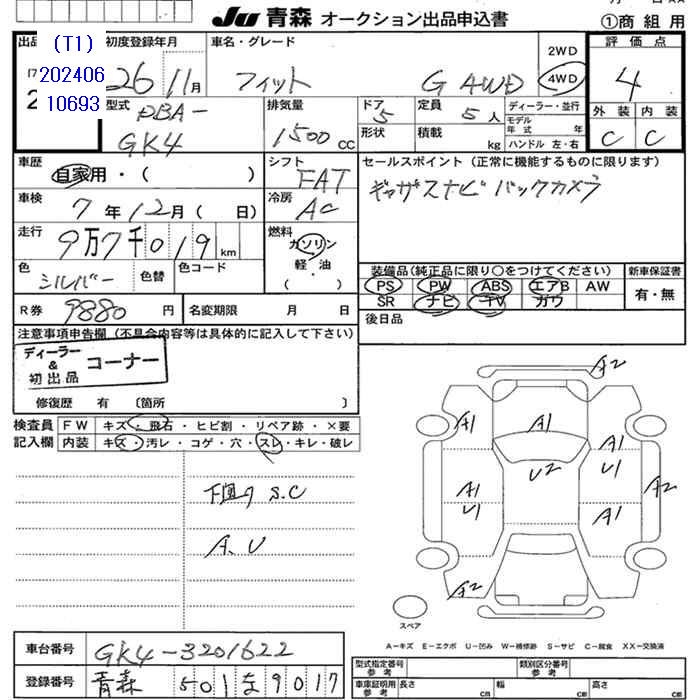 JU 青森 オークション出品申込書
①商 組 用
出品
(T1)
202406
10693
初度登録年月
26 11月
車名・グレード
フィット G 4WD
2WD
4WD
評 価 点
4
外 装 内 装
C C
型式
DBA-
GK4
排気量
1500 CC
ドア
5
定員
5 人
形状
積載
kg
ディーラー・並行
モデル
年 式 年
ハンドル 左・右
車歴
自家用・( )
シフト
FAT
セールスポイント (正常に機能するものに限ります)
ギャザズナビ バックカメラ
車検
7 年 12月 ( 日)
冷房
AC
走行
9万7千019 km
燃料
ガソリン
軽・油
( ・ )
色
シルバー
色替
色コード
装備品(純正品に限り○をつけてください)
PS PW ABS エアB AW
SR ナビ TV カワ
新車保証書
有・無
R券
9880 円
名変期限 月 日
後日品
注意事項申告欄 (不具合内容等は具体的に記入して下さい)
ディーラー
&
初出品
コーナー
修復歴 有 〔箇所 〕
検査員
記入欄
FW キズ・飛石・ヒビ割・リペア跡・×要
内装 キズ・汚レ・コゲ・穴・スレ・キレ・破レ
下回り S.C
A、U
A2
A1
A1
A1
U1
U2
A1
U1
A1
A2
A2
スペア
A-キズ E-エクボ U-凹み W-補修跡 S-サビ C-腐食 XX-交換済
車台番号
GK4-3201622
登録番号
青森 501 な 9017
型式指定番号
参 考
類別区分番号
参 考
車庫証明用
参 考
長さ cm
幅 cm
高さ cm